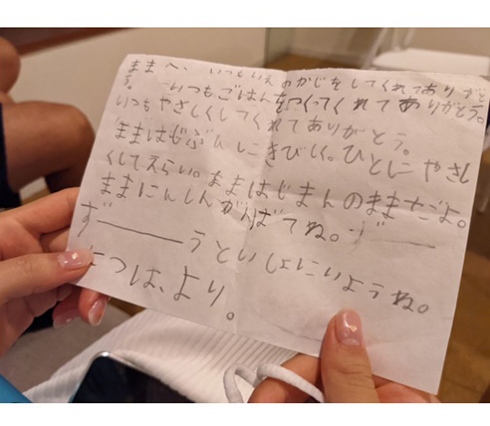 ままへ、いつもいえのかじをしてくれてありがと
う。いつもごはんをつくってくれてありがとう。
いつもやさしくしてくれてありがとう。
ままはじぶんにきびしく。ひとにやさし
くしてえらい。ままはじまんのままだよ。
ままにんしんがんばてね。ず
ず―――うといしょにいようね。
つは、より。